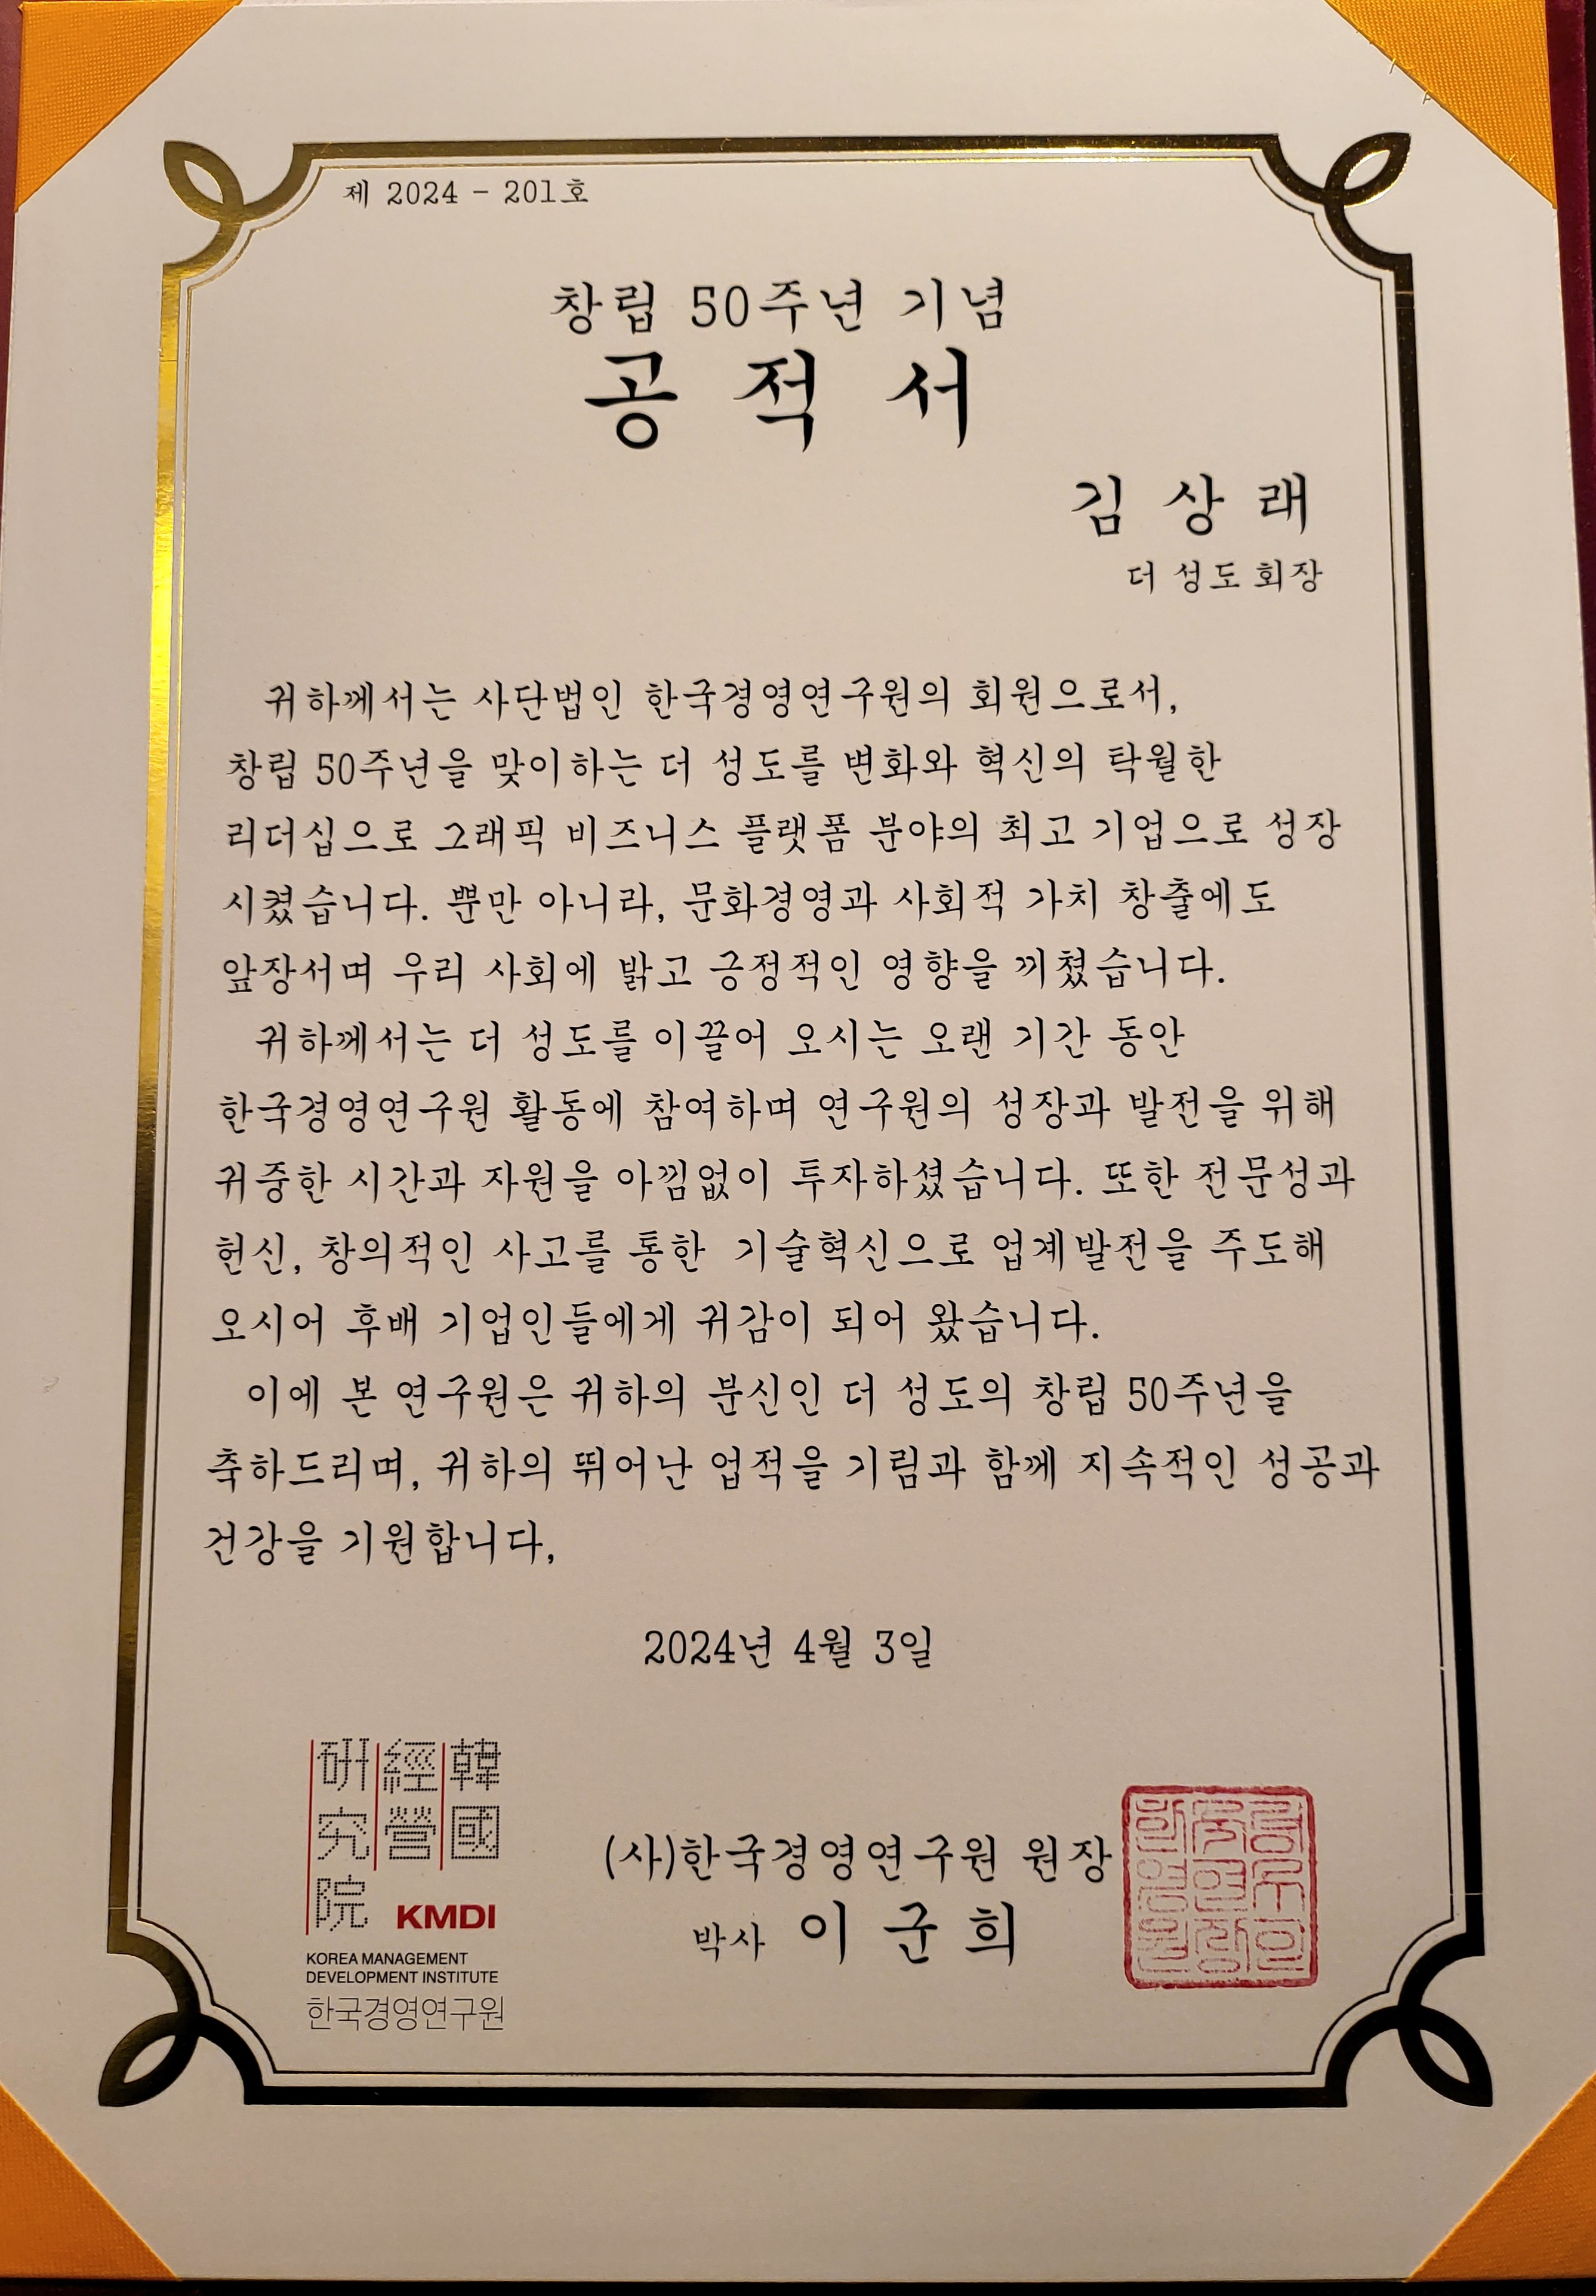 제 2024 - 201호
창립 50주년 기념
공 적 서
김 상 래
더 성도 회장
귀하께서는 사단법인 한국경영연구원의 회원으로서,
창립 50주년을 맞이하는 더 성도를 변화와 혁신의 탁월한
리더십으로 그래픽 비즈니스 플랫폼 분야의 최고 기업으로 성장
시켰습니다. 뿐만 아니라, 문화경영과 사회적 가치 창출에도
앞장서며 우리 사회에 밝고 긍정적인 영향을 끼쳤습니다.
귀하께서는 더 성도를 이끌어 오시는 오랜 기간 동안
한국경영연구원 활동에 참여하며 연구원의 성장과 발전을 위해
귀중한 시간과 자원을 아낌없이 투자하셨습니다. 또한 전문성과
헌신, 창의적인 사고를 통한 기술혁신으로 업계발전을 주도해
오시어 후배 기업인들에게 귀감이 되어 왔습니다.
이에 본 연구원은 귀하의 분신인 더 성도의 창립 50주년을
축하드리며, 귀하의 뛰어난 업적을 기림과 함께 지속적인 성공과
건강을 기원합니다,
2024년 4월 3일
韓國
經營
研究院
KMDI
KOREA MANAGEMENT
DEVELOPMENT INSTITUTE
한국경영연구원
(사)한국경영연구원 원장
박사 이 군 희